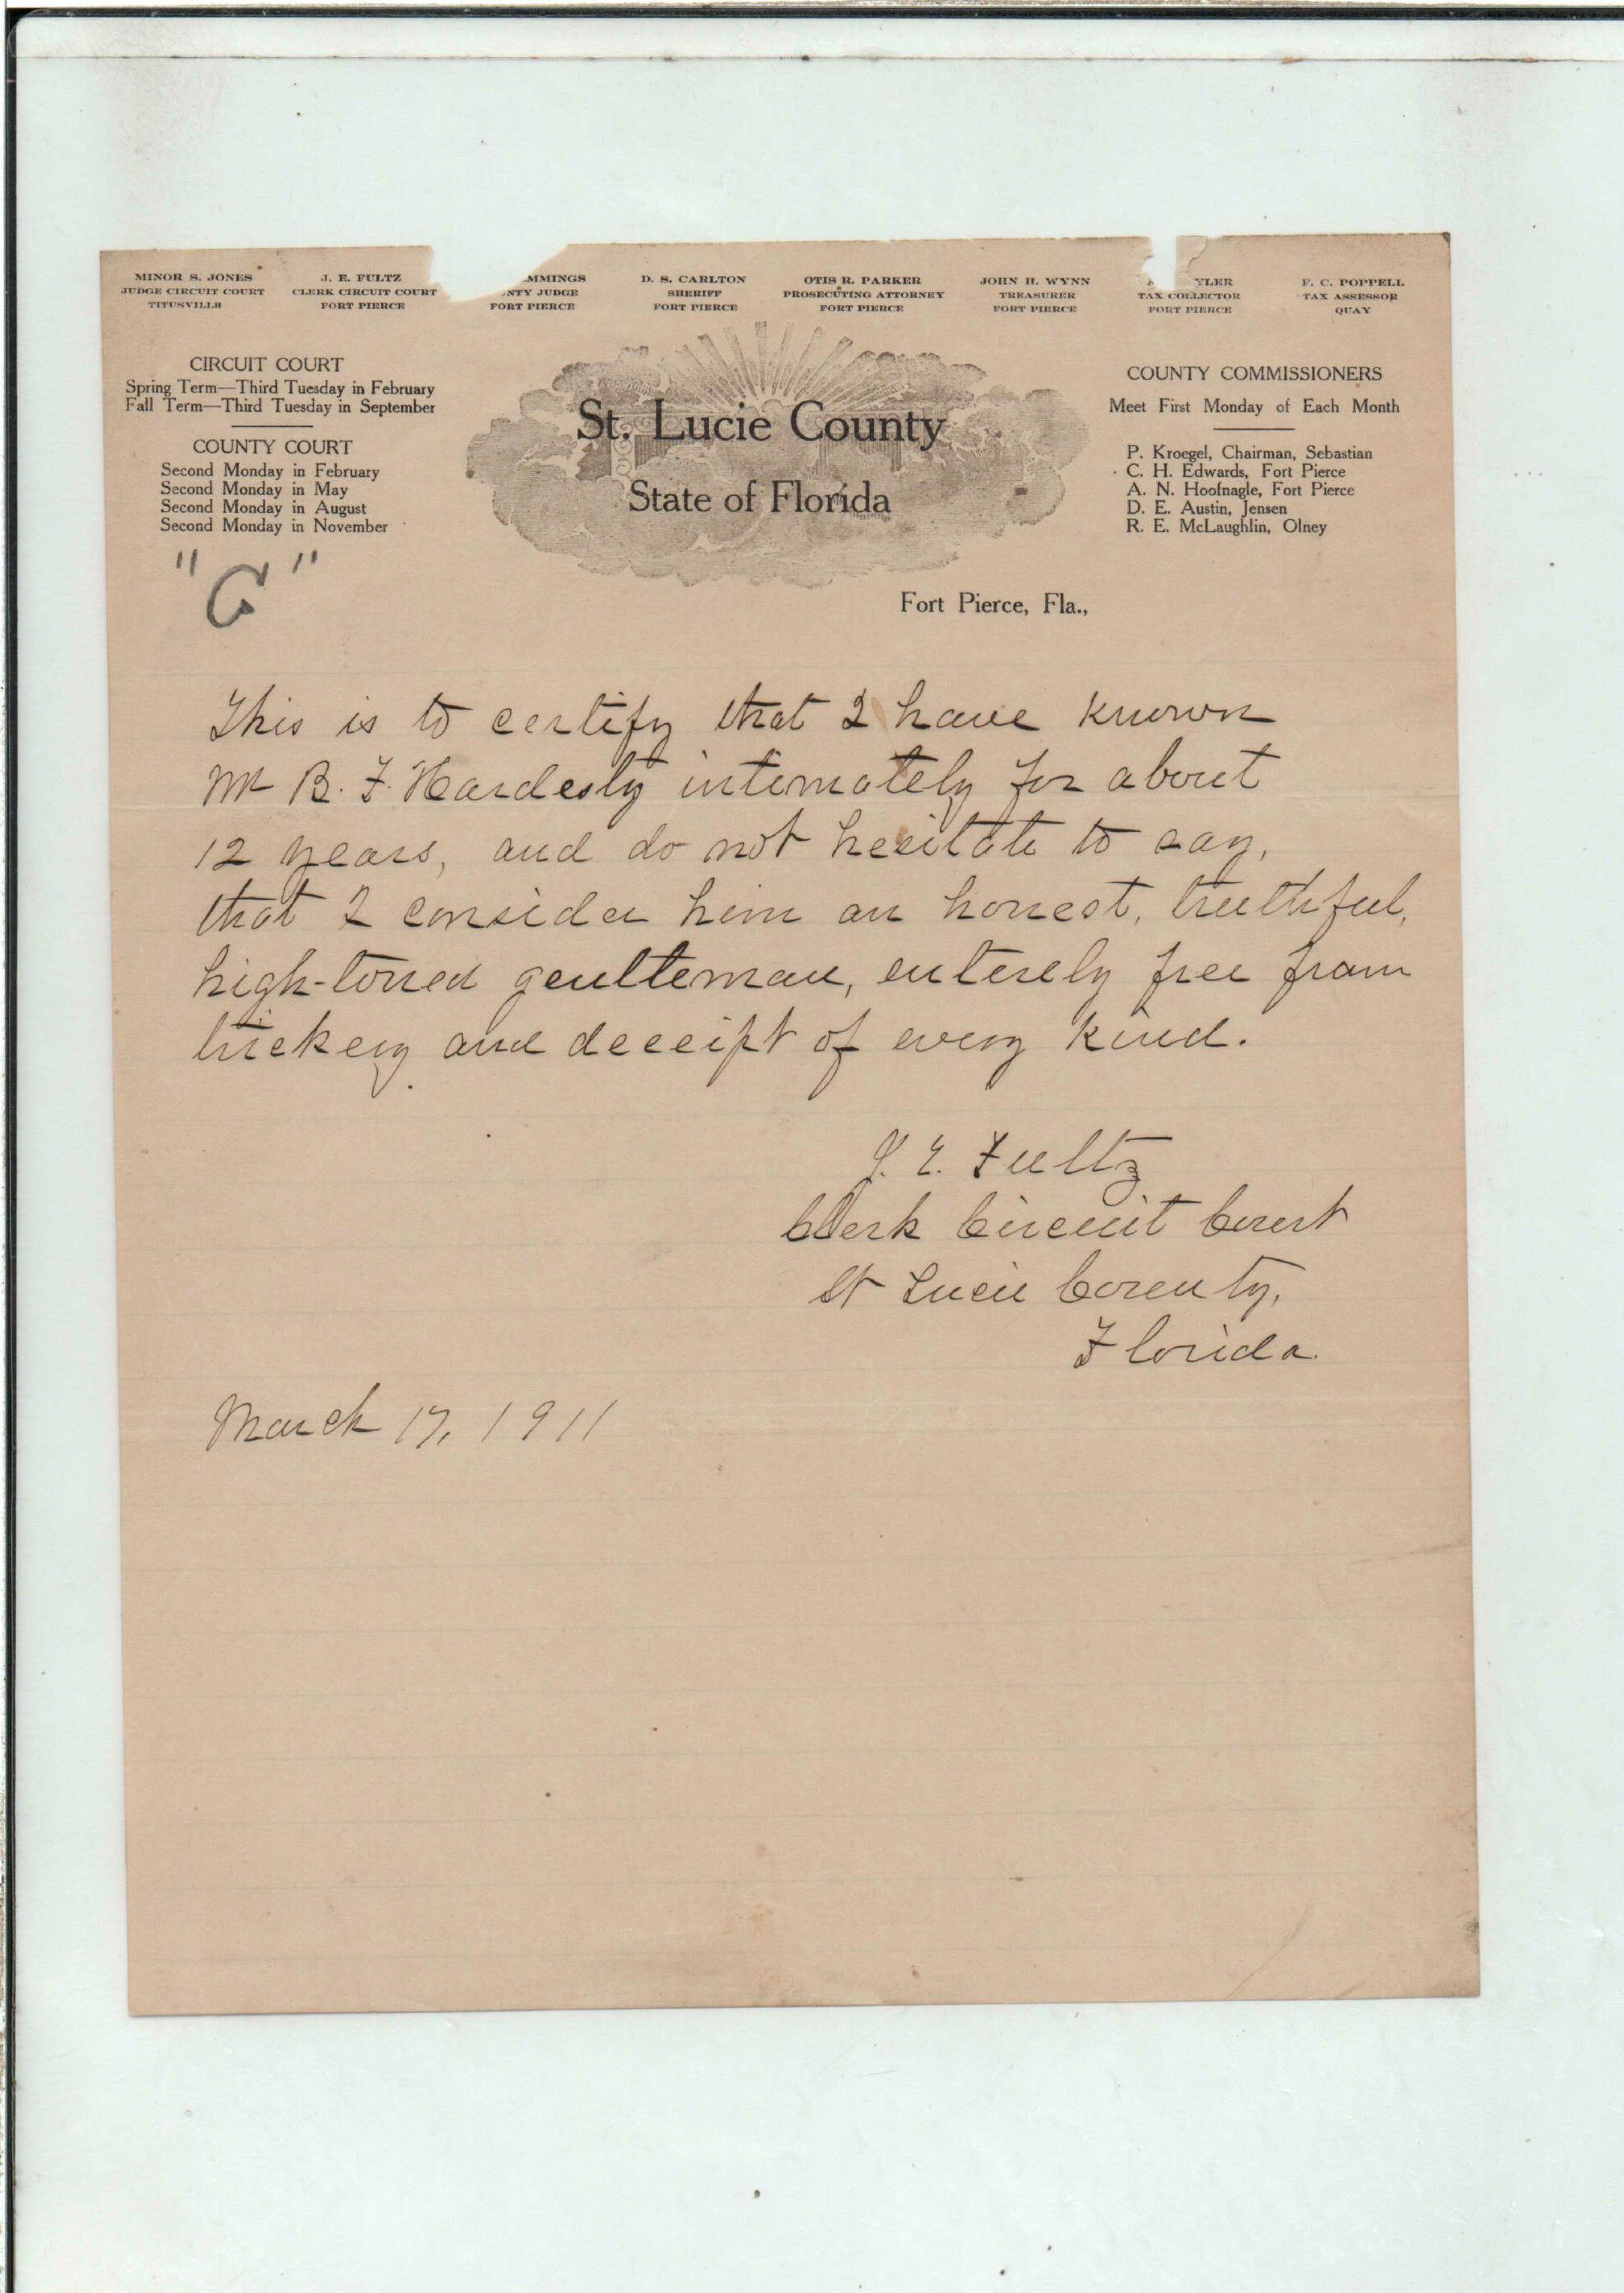 MINOR S. JONES
JUDGE CIRCUIT COURT
TITUSVILLE
J. E. FULTZ
CLERK CIRCUIT COURT
FORT PIERCE
MMINGS
NTY JUDGE
FORT PIERCE
D. S. CARLTON
SHERIFF
FORT PIERCE
OTIS R. PARKER
PROSECUTING ATTORNEY
FORT PIERCE
JOHN H. WYNN
TREASURER
FORT PIERCE
YLER
TAX COLLECTOR
FORT PIERCE
F. C. POPPELL
TAX ASSESSOR
QUAY
CIRCUIT COURT
Spring Term—Third Tuesday in February
Fall Term—Third Tuesday in September
COUNTY COURT
Second Monday in February
Second Monday in May
Second Monday in August
Second Monday in November
St. Lucie County
State of Florida
COUNTY COMMISSIONERS
Meet First Monday of Each Month
P. Kroegel, Chairman, Sebastian
C. H. Edwards, Fort Pierce
A. N. Hoofnagle, Fort Pierce
D. E. Austin, Jensen
R. E. McLaughlin, Olney
Fort Pierce, Fla.,
This is to certify that I have known
Mr B. F. Hardesty intimately for about
12 years, and do not hesitate to say,
that I consider him an honest, truthful,
high-toned gentleman, entirely free from
trickery and deceipt of every kind.
J. E. Fultz
Clerk Circuit Court
St Lucie County,
Florida.
March 17, 1911